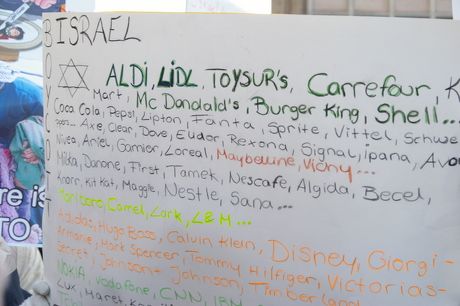 BOYCOT
ISRAEL
ALDI, LiDL, TOYSUR's, Carrefour, K
Mart, Mc Dondald's, Burger King, Shell...
Coca Cola, Pepsi, Lipton, Fanta, Sprite, Vittel, Schwe
Axe, Clear, Dove, Eudor, Rexona, Signal, ipana, Avo
Nivea, Ariel, Garnier, Loreal, Maybelline, Vichy...
Milka, Danone, First, Tamek, Nescafe, Algida, Becel,
Knorr, Kit Kat, Maggie, Nestle, Sana...
Marlboro, Camel, Lark, L&M...
Adidas, Hugo Boss, Calvin Klein, Disney, Giorgi-
Armane, Mark Spencer, Tommy Hilfiger, Victorias-
Secret, Johnson+Johnson, Timberland
NOKIA, Vodafone, CNN, IBM
Lux, Maret,
ere is
TO